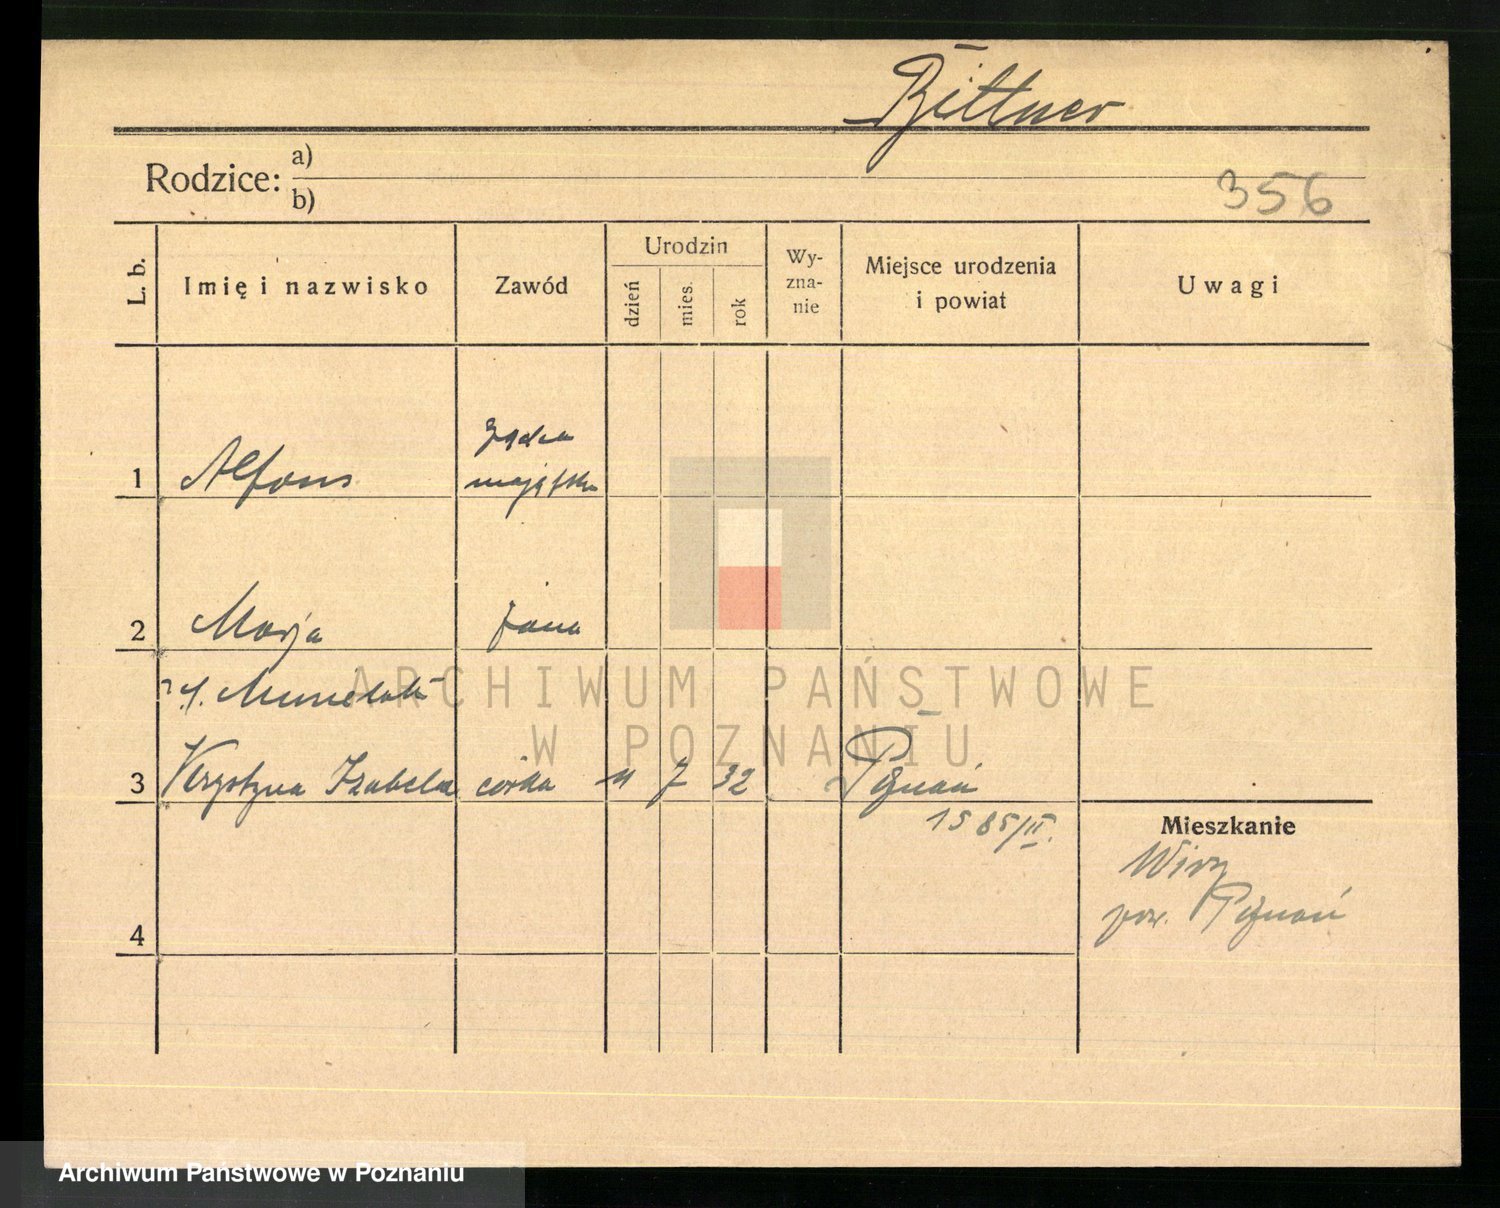 Bittner
Rodzice: a)
b)
356
L. b.
Imię i nazwisko
Zawód
Urodzin
dzień
mies.
rok
Wy-
zna-
nie
Miejsce urodzenia
i powiat
Uwagi
1 Alfons
rządca
majątku
2 Marja żona
3 Krystyna Izabela córka 11 7 32 Poznań
1585/II.
Mieszkanie
Wiry
pow. Poznań
4
ARCHIWUM PAŃSTWOWE
W POZNANIU
Archiwum Państwowe w Poznaniu